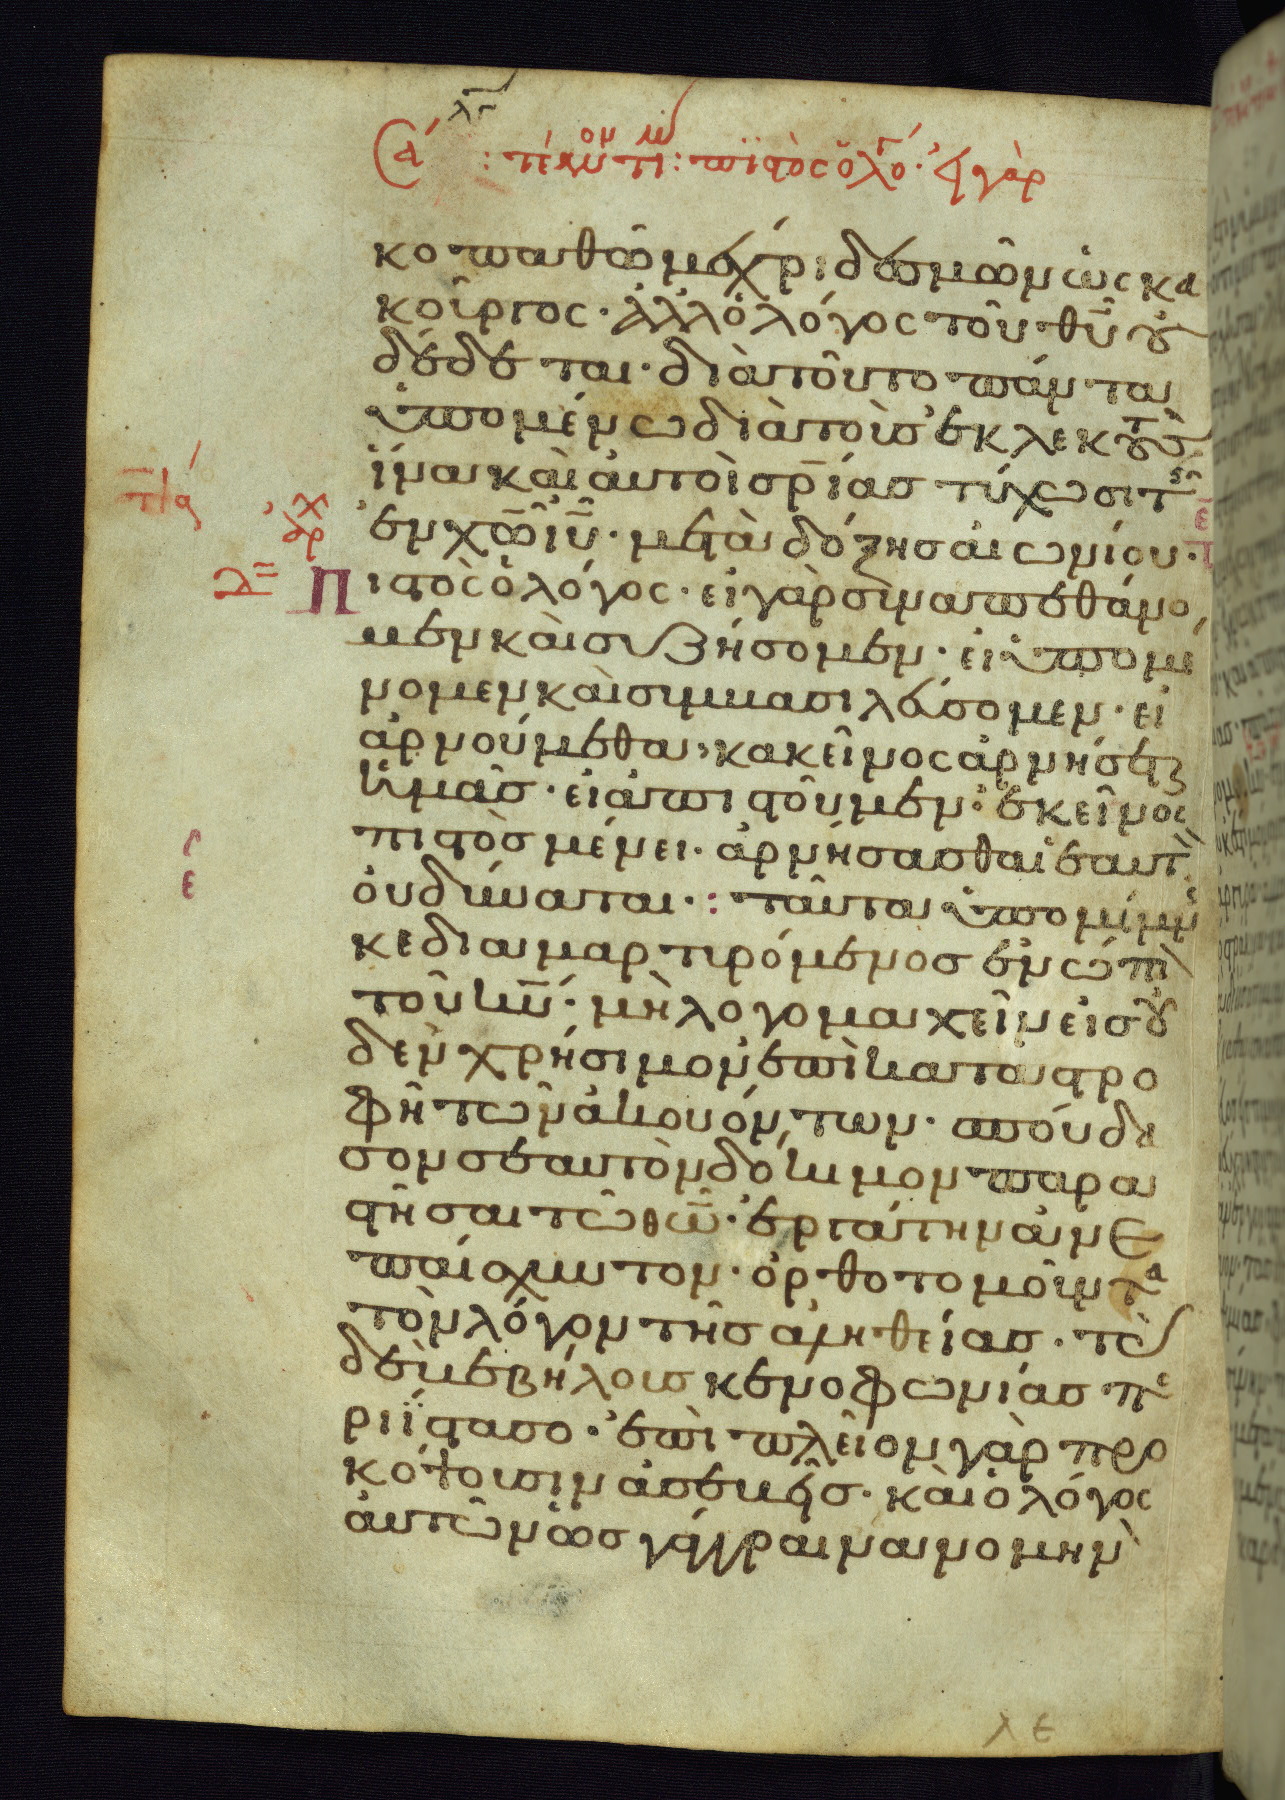 κοπαθῶ μέχρι δεσμῶν ὡς κα
κοῦργος· ἀλλ ὁ λόγος τοῦ θυ οὐ
δέδεται· διὰ τοῦτο πάντα
ὑπομένω διὰ τοὺς ἐκλεκτοὺς
ἵνα καὶ αὐτοὶ σρίας τύχωσι τῆς
ἐν χω ιυ· μετὰ δόξης αἰωνίου·
Πιστὸς ὁ λόγος· εἰ γὰρ σιναπεθάνο
μεν καὶ συζήσομεν· εἰ ὑπομέ
νομεν καὶ σιμβασιλεύσομεν· εἰ
ἀρνούμεθα, κακεῖνος ἀρνήσεται
ἡμᾶς· εἰ ἀπιστοῦμεν· ἐκεῖνος
πιστὸς μένει· ἀρνήσασθαι ἑαυτὸν
οὐ δύναται· : ταῦτα ὑπομίμνη
κε διαμαρτιρόμενος ἐνώπιον
τοῦ κυ· μὴ λογομαχεῖν εἰς οὐ
δὲν χρήσιμον ἐπὶ καταστρο
φῇ τῶν ἀκουόντων· σπούδα
σον σεαυτὸν δόκιμον παρα
στῆσαι τῷ θῶ· ἐργάτην ἀνε
παίσχυντον· ὀρθοτομοῦντα
τὸν λόγον τῆς ἀληθείας· τὰς
δὲ βεβήλους κενοφωνίας πε
ριΐστασο· ἐπὶ πλεῖον γὰρ προ
κόψουσιν ἀσεβείας· καὶ ὁ λόγος
αὐτῶν ὡς γάγγραινα νομὴν
λε